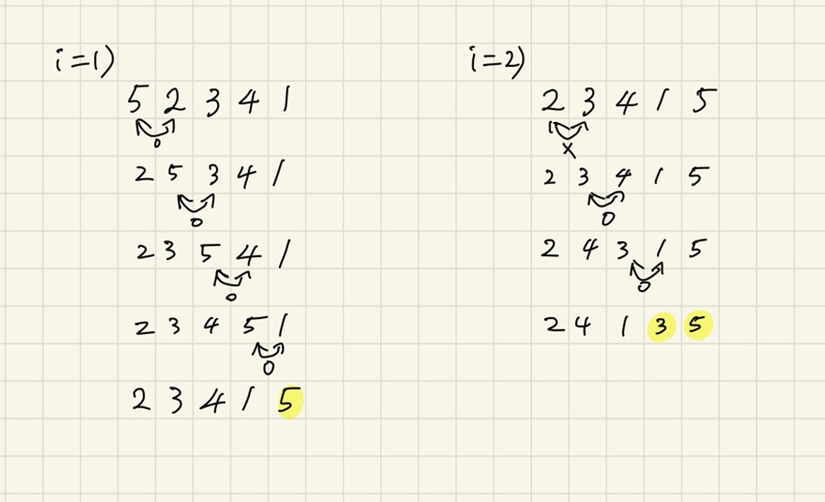 i=1)
5 2 3 4 1
o
2 5 3 4 1
o
2 3 5 4 1
o
2 3 4 5 1
o
2 3 4 1 5
i=2)
2 3 4 1 5
x
2 3 4 1 5
o
2 4 3 1 5
o
2 4 1 3 5